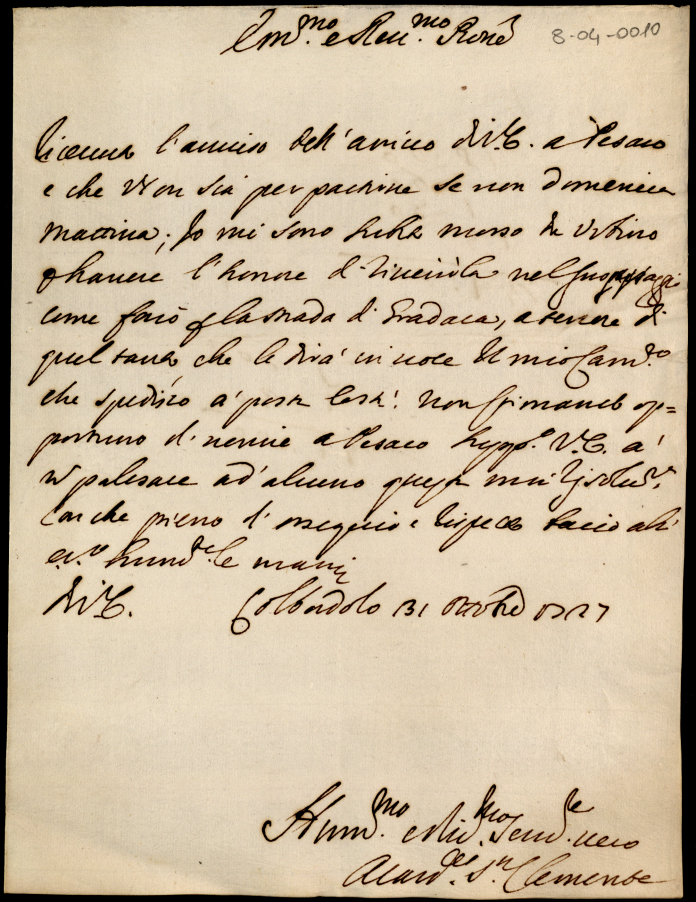 Em.mo e Reu.mo Pron̄e
8-04-0010
Riceuuta l'auuiso dell'arriuo di V.E. a Pesaro
e che Non sia per partire se non domenica
mattina; Io mi sono mosso da Urbino
per hauere l'honore di riuerirla nel suo passaggio
come farò per la strada di Gradara, a tenore di
quel tanto che le dirà in uoce Il mio Cam.
che spedisco a' posta costà. non stimando op=
portuno di uenire a Pesaro supp.o V.E. a'
palesare ad' alcuno questa mia
Con che pieno d'ossequio e rispetto bacio all'
E.V. hum.te le mani
Di V.E. Colbordolo 31 Ottobre 1727
Hum.mo e Diu.mo Seru.re uero
Aless.o S. Clemente